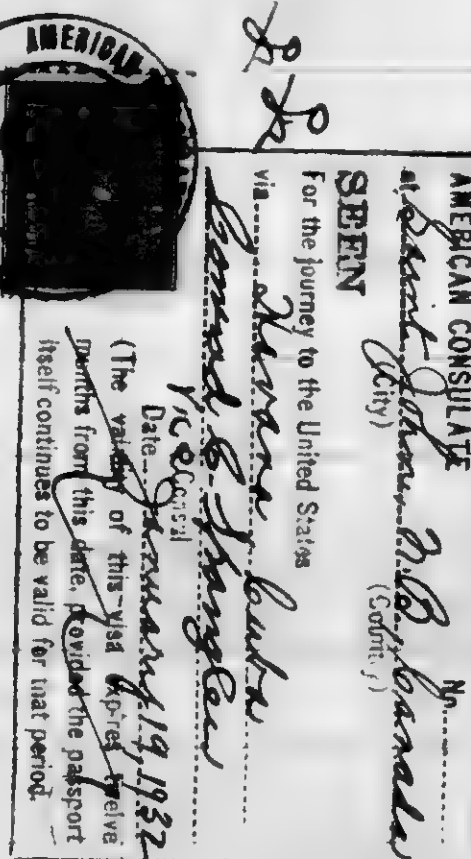 AMERICAN CONSULATE
at Saint John, N.B. Canada No.
(City) (Country)
SEEN
For the journey to the United States
via Havana, Cuba
Vice Consul
Date January 19, 1932
(The validity of this visa expires twelve
months from this date, provided the passport
itself continues to be valid for that period.
AMERICAN